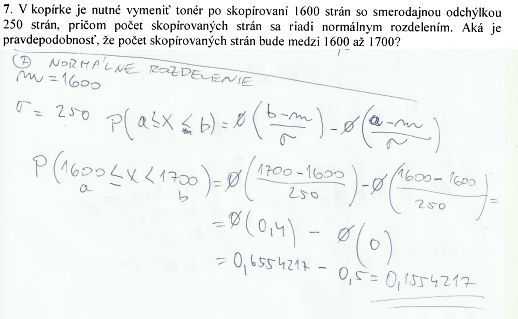 7. V kopírke je nutné vymeniť tonér po skopírovaní 1600 strán so smerodajnou odchýlkou
250 strán, pričom počet skopírovaných strán sa riadi normálnym rozdelením. Aká je
pravdepodobnosť, že počet skopírovaných strán bude medzi 1600 až 1700?
⑦ NORMÁLNE ROZDELENIE
m = 1600
σ = 250 P(a≤X≤b) = Ø((b-m)/σ) - Ø((a-m)/σ)
P(1600≤X<1700) = Ø((1700-1600)/250) - Ø((1600-1600)/250) =
a b
= Ø(0,4) - Ø(0)
= 0,6554217 - 0,5 = 0,1554217